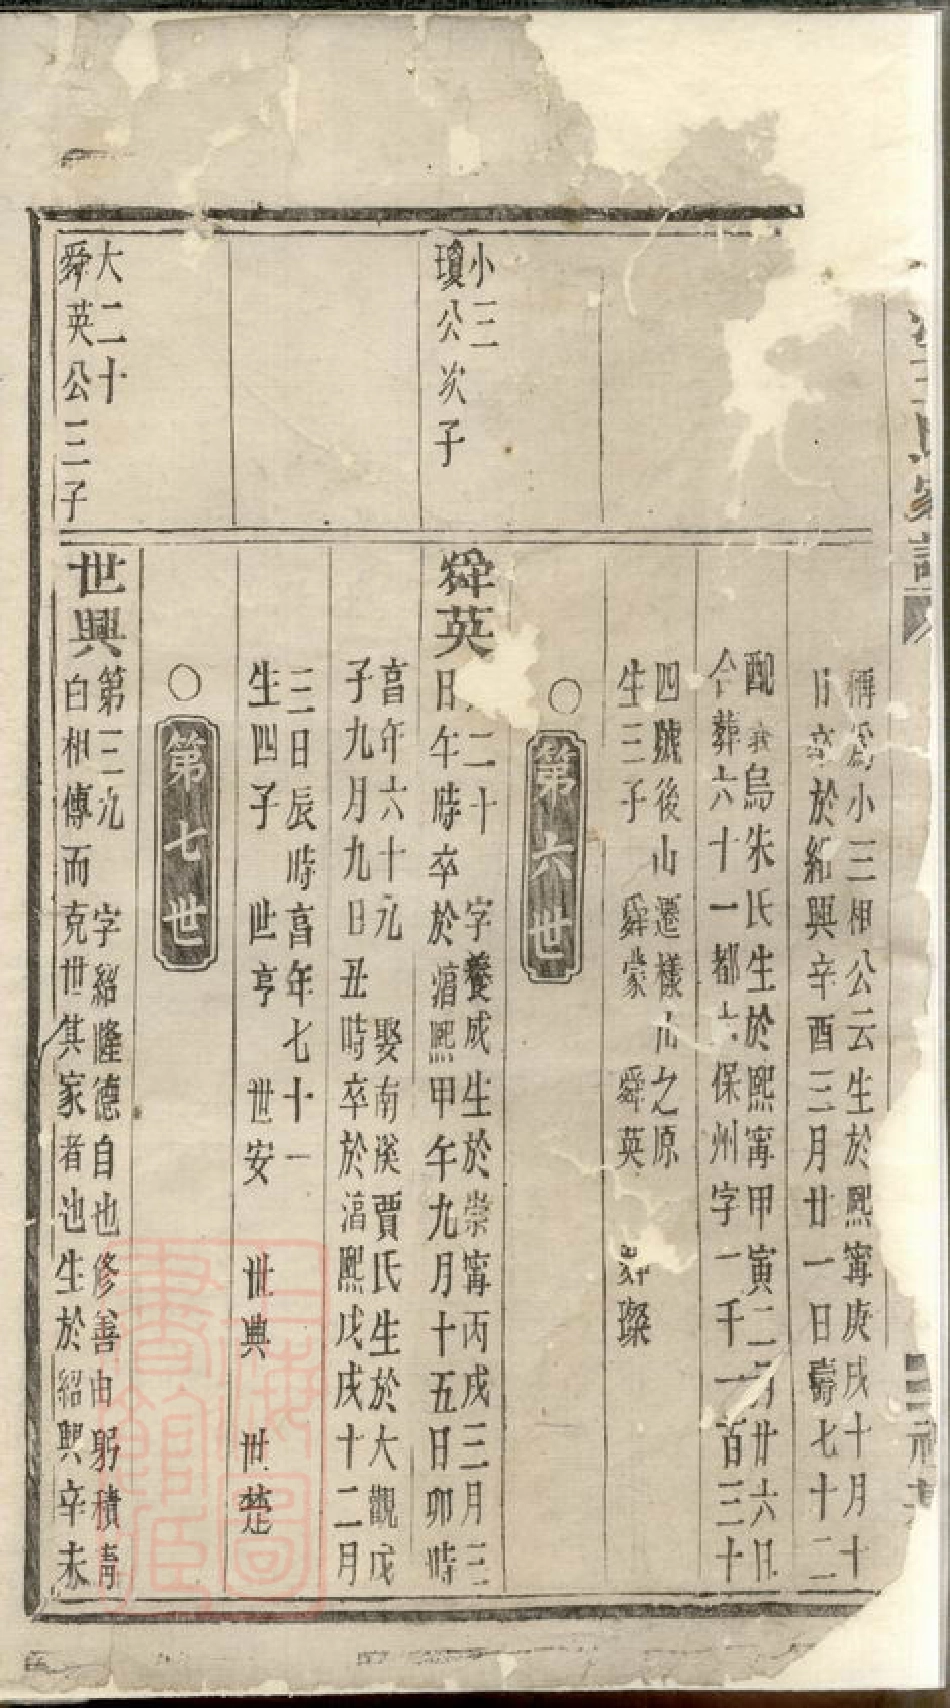 稱為小三相公云生於熙寧庚戌十月十
日卒於紹興辛酉三月廿一日壽七十二
配義烏朱氏生於熙寧甲寅二月廿六日
合葬六十一都六保州字一千一百三十
四號後山遷樣山之原
生三子 舜蒙 舜英 舜璨
第六世
小三
瓊公次子
舜英
二十 字養成生於崇寧丙戌三月三
日午時卒於淳熙甲午九月十五日卯時
享年六十九 娶南溪賈氏生於大觀戊
子九月九日丑時卒於淳熙戊戌十二月
三日辰時享年七十一
生四子 世亨 世安 世興 世楚
第七世
大二十
舜英公三子
世興
第三九 字紹隆德自也修善由躬積青
白相傳而克世其家者也生於紹興辛未
上海圖書館藏